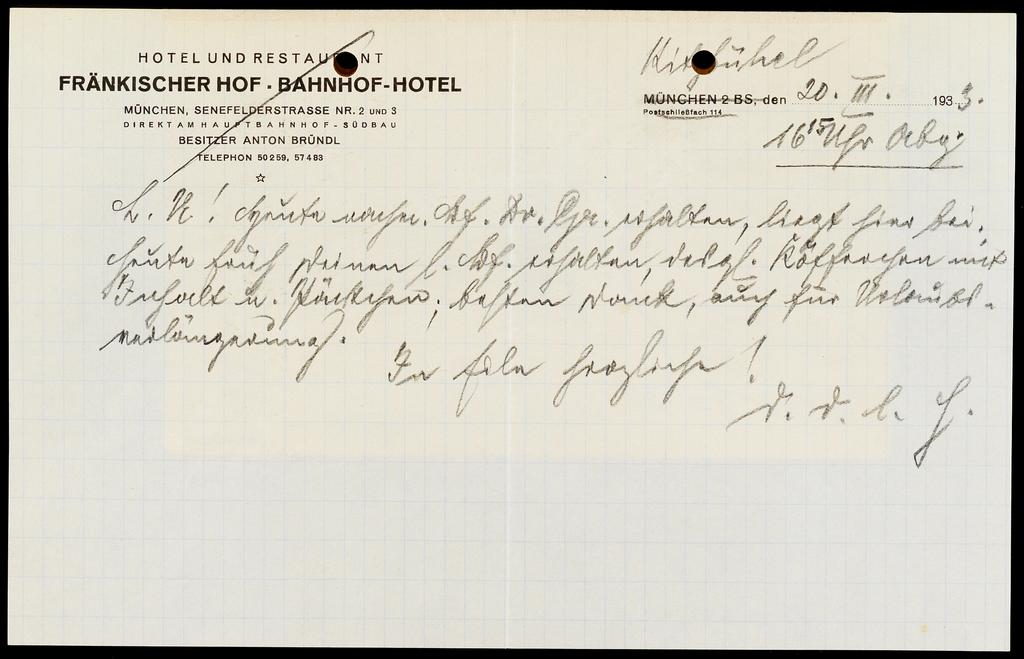 HOTEL UND RESTAURANT
FRÄNKISCHER HOF · BAHNHOF-HOTEL
MÜNCHEN, SENEFELDERSTRASSE NR. 2 UND 3
DIREKT AM HAUPTBAHNHOF - SÜDBAU
BESITZER ANTON BRÜNDL
TELEPHON 50259, 57483
Kitzbühel
MÜNCHEN 2 BS, den 20. III. 1933.
Postschließfach 114
16¹⁵ Uhr Abg.
L. A.! Heute nachm. Bf. Dr. erhalten, liegt hier bei.
Heute früh Deinen l. Bf. erhalten, desgl. Köfferchen mit
Inhalt u. Päckchen; besten Dank, auch für Urlaubs-
verlängerung.
In Eile herzlichst!
D. D. l. H.